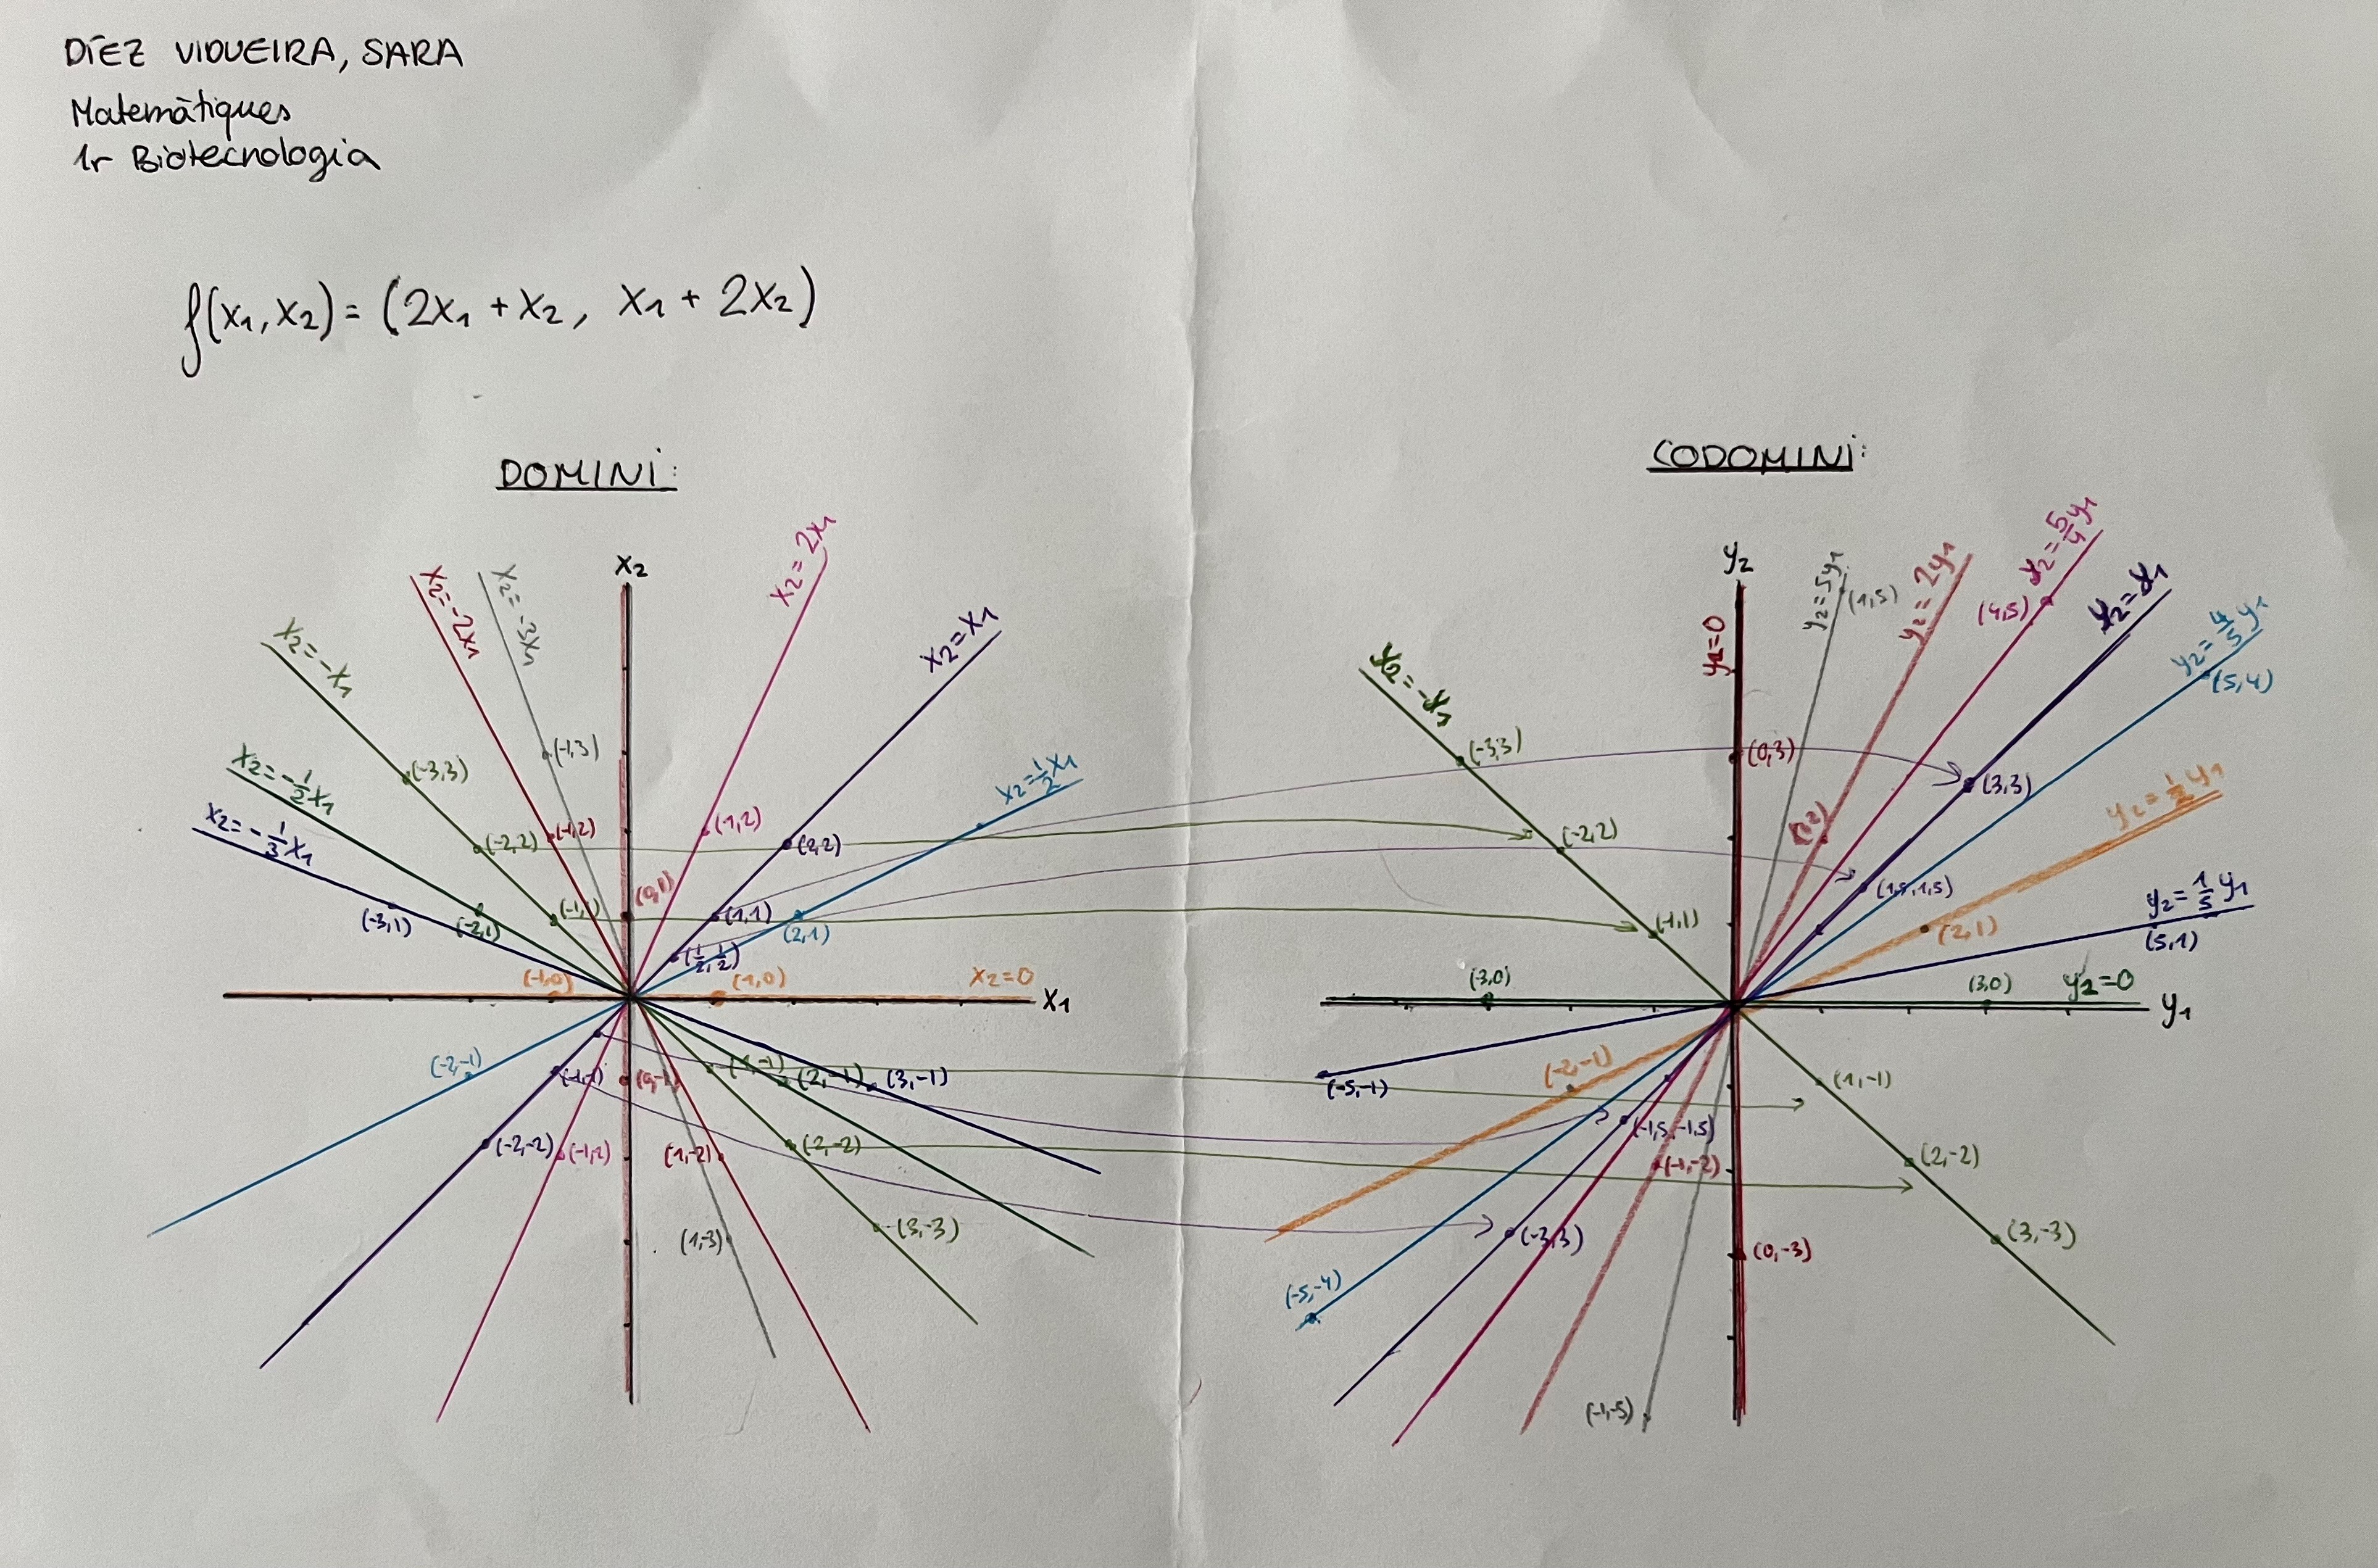 DÍEZ VIDUEIRA, SARA
Matemàtiques
1r Biotecnologia
f(x₁,x₂) = (2x₁ + x₂, x₁ + 2x₂)
DOMINI:
x₂
x₂=-x₁
x₂=-2x₁
x₂=-3x₁
x₂=2x₁
x₂=x₁
x₂=-1/2x₁
x₂=-1/3x₁
x₂=1/2x₁
(-3,3)
(-1,3)
(-2,2)
(-1,2)
(1,2)
(2,2)
(-3,1)
(-2,1)
(-1,1)
(0,1)
(1,1)
(2,1)
(1/2,1/2)
(-1,0)
(1,0)
x₂=0
x₁
(-2,-1)
(-1,-1)
(0,-1)
(1,-1)
(2,-1)
(3,-1)
(-2,-2)
(-1,2)
(1,-2)
(2,-2)
(1,-3)
(3,-3)
CODOMINI:
y₂
y₁=0
y₂=5y₁
(1,5)
y₂=2y₁
y₂=5/4y₁
(4,5)
y₂=y₁
y₂=4/5y₁
(5,4)
y₂=-y₁
(-3,3)
(0,3)
(3,3)
y₂=1/2y₁
(-2,2)
(1,2)
(1,5,1,5)
y₂=1/5y₁
(-1,1)
(2,1)
(5,1)
(3,0)
(3,0)
y₂=0
y₁
(-5,-1)
(-2,-1)
(1,-1)
(-1,5,-1,5)
(-1,-2)
(2,-2)
(-3,3)
(0,-3)
(3,-3)
(-5,-4)
(-1,-5)